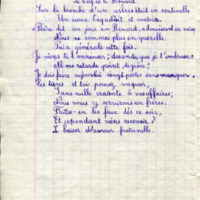 Le Coq et le Renard
Sur la branche d'un arbre était en sentinelle
Un vieux Coq adroit et matois.
Frère dit un jour un Renard, adoucissant sa voix
Nous ne sommes plus en querelle.
Paix générale cette fois.
Je viens te l'annoncer; descends que je t'embrasse
Ne me retarde point de grâce;
Je dois faire aujourd'hui vingt postes sans manquer.
Les tiens et toi pouvez vaquer,
Sans nulle crainte à vos affaires;
Nous vous y servirons en frères.
Faites-en les feux dès ce soir,
Et cependant viens recevoir
Le baiser d'amour fraternelle.